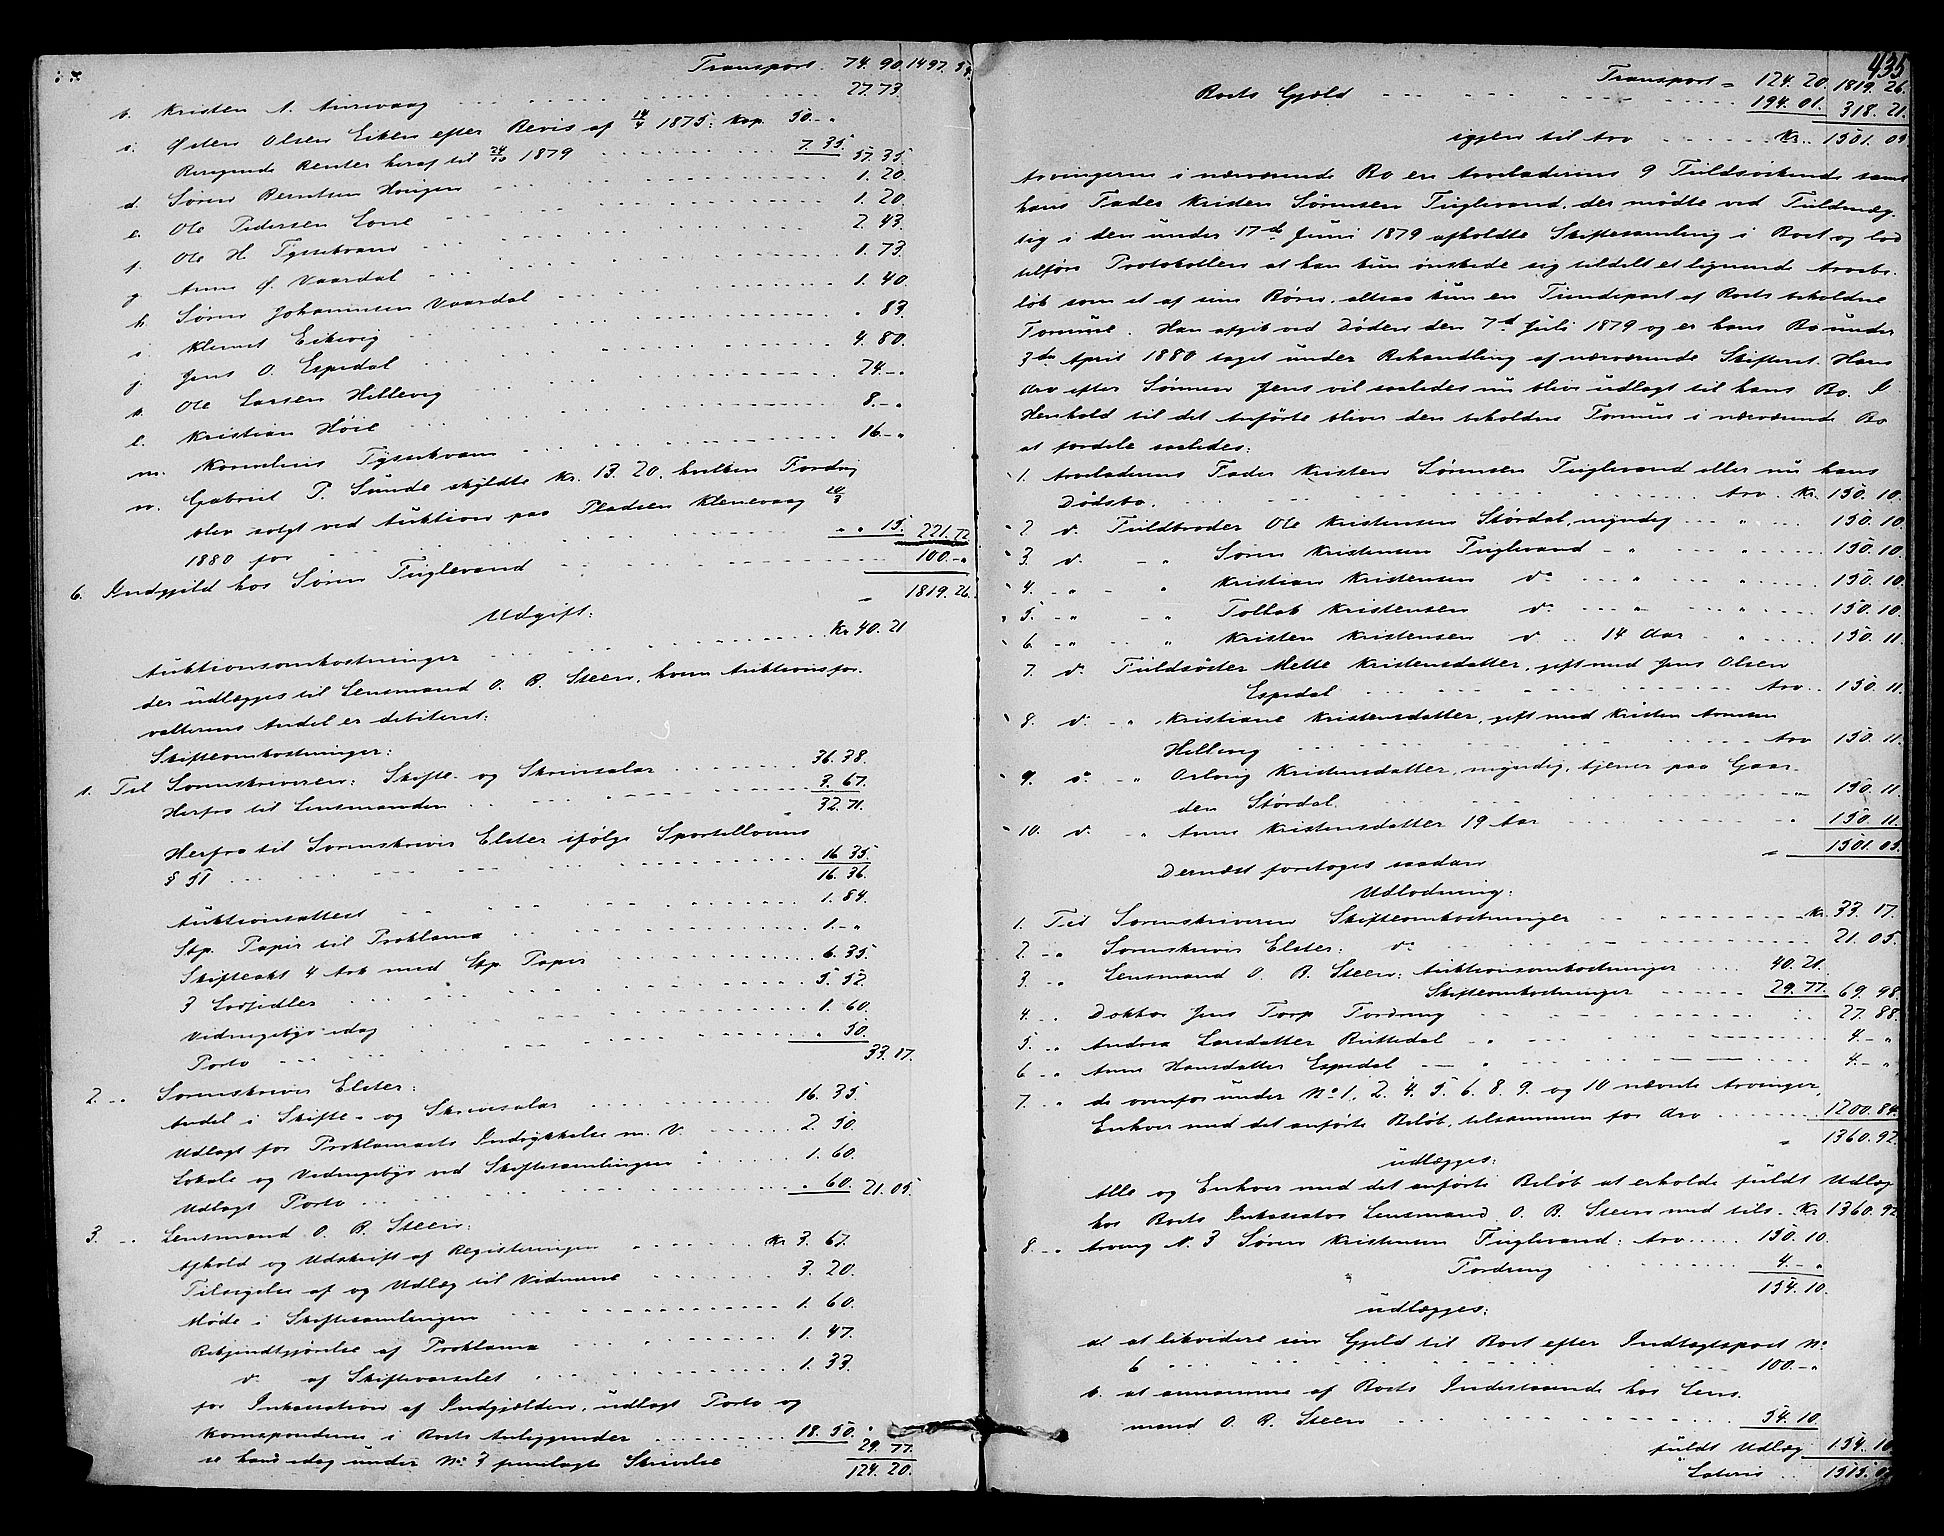 Transport. 74. 90. 1497. 54.
b. Kristen A. Aursvaag 27. 73.
c. Østen Olsen Eiken efter Bevis af 1875: Kap. 50. - "
Beregnede Renter heraf til 1879 7. 35. 57. 35.
d. Søren Berntsen 1. 20.
e. Ole Pedersen Lone 1. 20.
f. Ole H. Tyssekvam 2. 43.
g. Anne Ø. Vaardal 1. 73.
h. Søren Johannesen Vaardal 1. 40.
i. Klemet Eikevig " 83.
j. Jens O. Espedal 4. 80.
k. Ole Larsen Hellevig 74. - "
l. Kristian Høie 8. - "
m. Kornelius Tyssekvam 16. - "
n. Gabriel P. Sunde skyldte Kr. 13. 20, hvilken Fordring
blev solgt ved Auktion paa Pladsen Klenevaag
1880 for " " 15. 221. 72
6. Indgjeld hos Søren Fuglevand 100. - "
" 1819. 26.
Udgift:
Auktionsomkostninger Kr 40. 21
der udlægges til Lensmand O. B. Steen, hvem Auktionsfor-
valterens Andel er debiteret:
Skifteomkostninger:
1. Til Sorenskriveren: Skifte- og Skriversalær 36. 38.
Herfra til Lensmanden 3. 67.
32. 71.
Herfra til Sorenskriver Elster ifølge Sportellovens
§ 51 16. 35.
16. 36.
Auktionsattest 1. 84.
Stp. Papir til Proklama 1. - "
Skifteakt 4 Ark med Stp. Papir 6. 35.
3 Lodsedler 5. 52.
Vidnegebyr idag 1. 60.
Porto " 50.
33. 17.
2. - " Sorenskriver Elster:
Andel i Skifte- og Skriversalær 16. 35.
Udlagt for Proklamaets Indrykkelse m. V. 2. 50.
Lokale og Vidnegebyr ved Skiftesamlingen 1. 60.
Udlagt Porto " 60. 21. 05.
3. - " Lensmand O. B. Steen:
Afhold og Udskrift af Registreringen Kr. 3. 67.
Tilsigelse af og Udlæg til Vidnerne 3. 20.
Møde i Skiftesamlingen 1. 60.
Bekjendtgjørelse af Proklama 1. 47.
do. af Skiftevarselet 1. 33.
for Inkassation af Indgjælden, udlagt Porto og
Korrespondence i Boets Anliggender 18. 50.
29. 77.
se hans idag under No. 3 fremlagte Skrivelse 124. 20.
435
Transport " 124. 20. 1819. 26.
Boets Gjæld 194. 01. 318. 21.
igjen til Arv Kr. 1501. 05
Arvingerne i nærværende Bo er Arveladerens 9 Fuldsøskende samt
hans Fader Kristen Sørensen Fuglevand, der mødte ved Fuldmæg-
tig i den under 17de Juni 1879 afholdte Skiftesamling i Boet og lod
tilføre Protokollen at han kun ønskede sig tildelt et lignende Arvebe-
løb som et af sine Børn, altsaa kun en Tiendepart af Boets beholdne
Formue. Han afgik ved Døden den 7de Juli 1879 og er hans Bo under
3die April 1880 taget under Behandling af nærværende Skifteret. Hans
Arv efter Sønnen Jens vil saaledes nu blive udlagt til hans Bo. I
Henhold til det anførte bliver den beholdne Formue i nærværende Bo
at fordele saaledes:
1. Arveladerens Fader Kristen Sørensen Fuglevand eller nu hans
Dødsbo. Arv Kr. 150. 10.
2 do. Fuldbroder Ole Kristensen Stordal, myndig " 150. 10.
3. do. - " Søren Kristensen Fuglevand - " 150. 10.
4. - " - " Kristian Kristensen do. " 150. 10.
5. - " - " Tollak Kristensen do. " 150. 10.
6. - " - " Kristen Kristensen do. 14 Aar " 150. 11.
7. do. Fuldsøster Mette Kristensdatter, gift med Jens Olsen
Espedal Arv 150. 11.
8. do. - " Kristiane Kristensdatter, gift med Kristen Arnesen
Hellevig Arv 150. 11.
9. do. - " Aslaug Kristensdatter, myndig, tjener paa Gaar-
den Stordal. " 150. 11.
10. do. - " Anne Kristensdatter 19 Aar " 150. 11.
" 1501. 05.
Dernæst foretoges saadan
Udlodning:
1. Til Sorenskriveren Skifteomkostninger Kr. 33. 17.
2. - " Sorenskriver Elster: do. 21. 05.
3. - " Lensmand O. B. Steen: Auktionsomkostninger 40. 21.
Skifteomkostninger 29. 77. 69. 98.
4. - " Doktor Jens Torp Fordring 27. 88.
5. - " Andrea Larsdatter Buttedal - " 4. - "
6 - " Anne Hansdatter Espedal - " 4. - "
7. - " de ovenfor under No. 1. 2. 4. 5. 6. 8. 9. og 10 nævnte Arvinger,
Enhver med det anførte Beløb, tilsammen for Arv 1200. 84.
" 1360. 92.
udlægges:
Alle og Enhver med det anførte Beløb at erholde fuldt Udlæg
hos Boets Inkassator Lensmand O. B. Steen med tils. Kr. 1360. 92
8. - " Arving N. 3 Søren Kristensen Fuglevand: Arv 150. 10.
" Fordring 4. - "
154. 10.
udlægges:
a. at likvidere sin Gjæld til Boet efter Indtægtspost No.
6 100. - "
b. at annamme af Boets Indestaaende hos Lens-
mand O. B. Steen 54. 10.
fuldt Udlæg 154. 10
Lateris 1515. 02